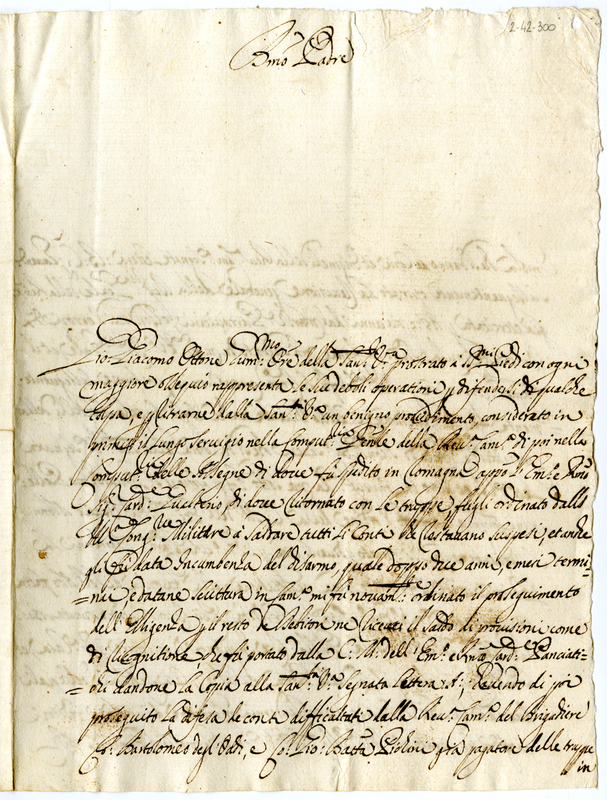 2-42-300
Bmo Padre
Gio: Giacomo Ettore Um:mo Ore della San:tà V:ra prostrato a SS:mi Piedi con ogni
maggiore ossequio rappresenta le sue deboli operationi p difendersi di qualche
e p ritrarne dalla San:tà V:ra un benigno procedimento, considerato in
primis il lungo servigio nella Comput:ria Gen:le della Reu: Cam:a di poi nella
Comput:ria delle Assegne di dove fù spedito in Romagna appo l'Em:o e Rmo
Sig:r Card:l di dove ritornato con le truppe fugli ordinato dalla
Cong:ne Militare à saldare tutti li Conti che restavano suspesi, et anche
gli fù data Incumbenza del disarmo, quale doppo due anni, e mesi termi=
=nai, e datane scrittura in Cam:a mi fù nouam:te ordinato il proseguimento
dell' p il resto de Debitori ne riceuei il saldo di prouisioni come
di recognitione, che fù portato dalla C: M: dell' Em:o e Rmo Card:l Panciati=
=chi dandone la Copia alla San:tà V:ra Segnata lettera A; di poi
proseguito la difesa de conti difficultati dalla Reu: Cam:a del Brigadiere
Co: Bartolomeo degl'Oddi, e Co: Gio: Batt:a pagatore delle truppe
in